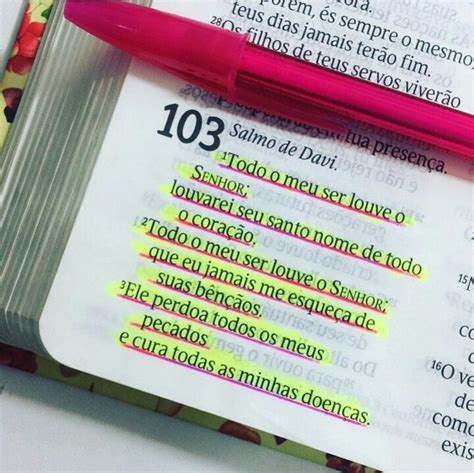 porém, és sempre o mesmo
teus dias jamais terão fim.
28Os filhos de teus servos viverão
tua presença.
103
Salmo de Davi.
1Todo o meu ser louve o
SENHOR;
louvarei seu santo nome de todo
o coração.
2Todo o meu ser louve o SENHOR;
que eu jamais me esqueça de
suas bênçãos.
3Ele perdoa todos os meus
pecados
e cura todas as minhas doenças.
15N
d
16O ve
de
como
exis